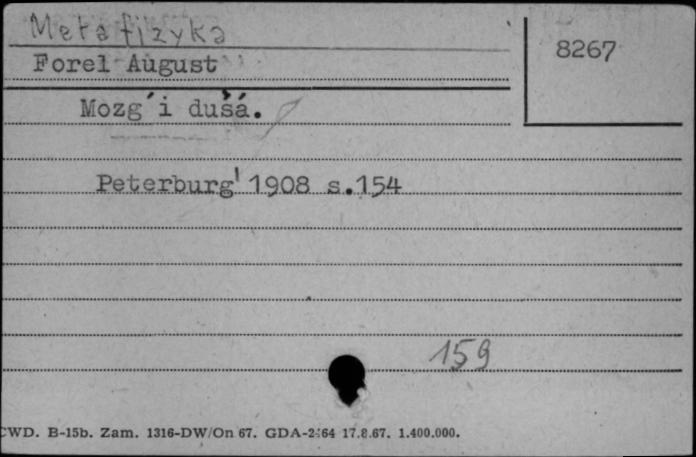 Metafizyka
Forel August
8267
Mozg´i dušá.
Peterburg' 1908 s.154
159
CWD. B-15b. Zam. 1316-DW/On 67. GDA-2-64 17.8.67. 1.400.000.